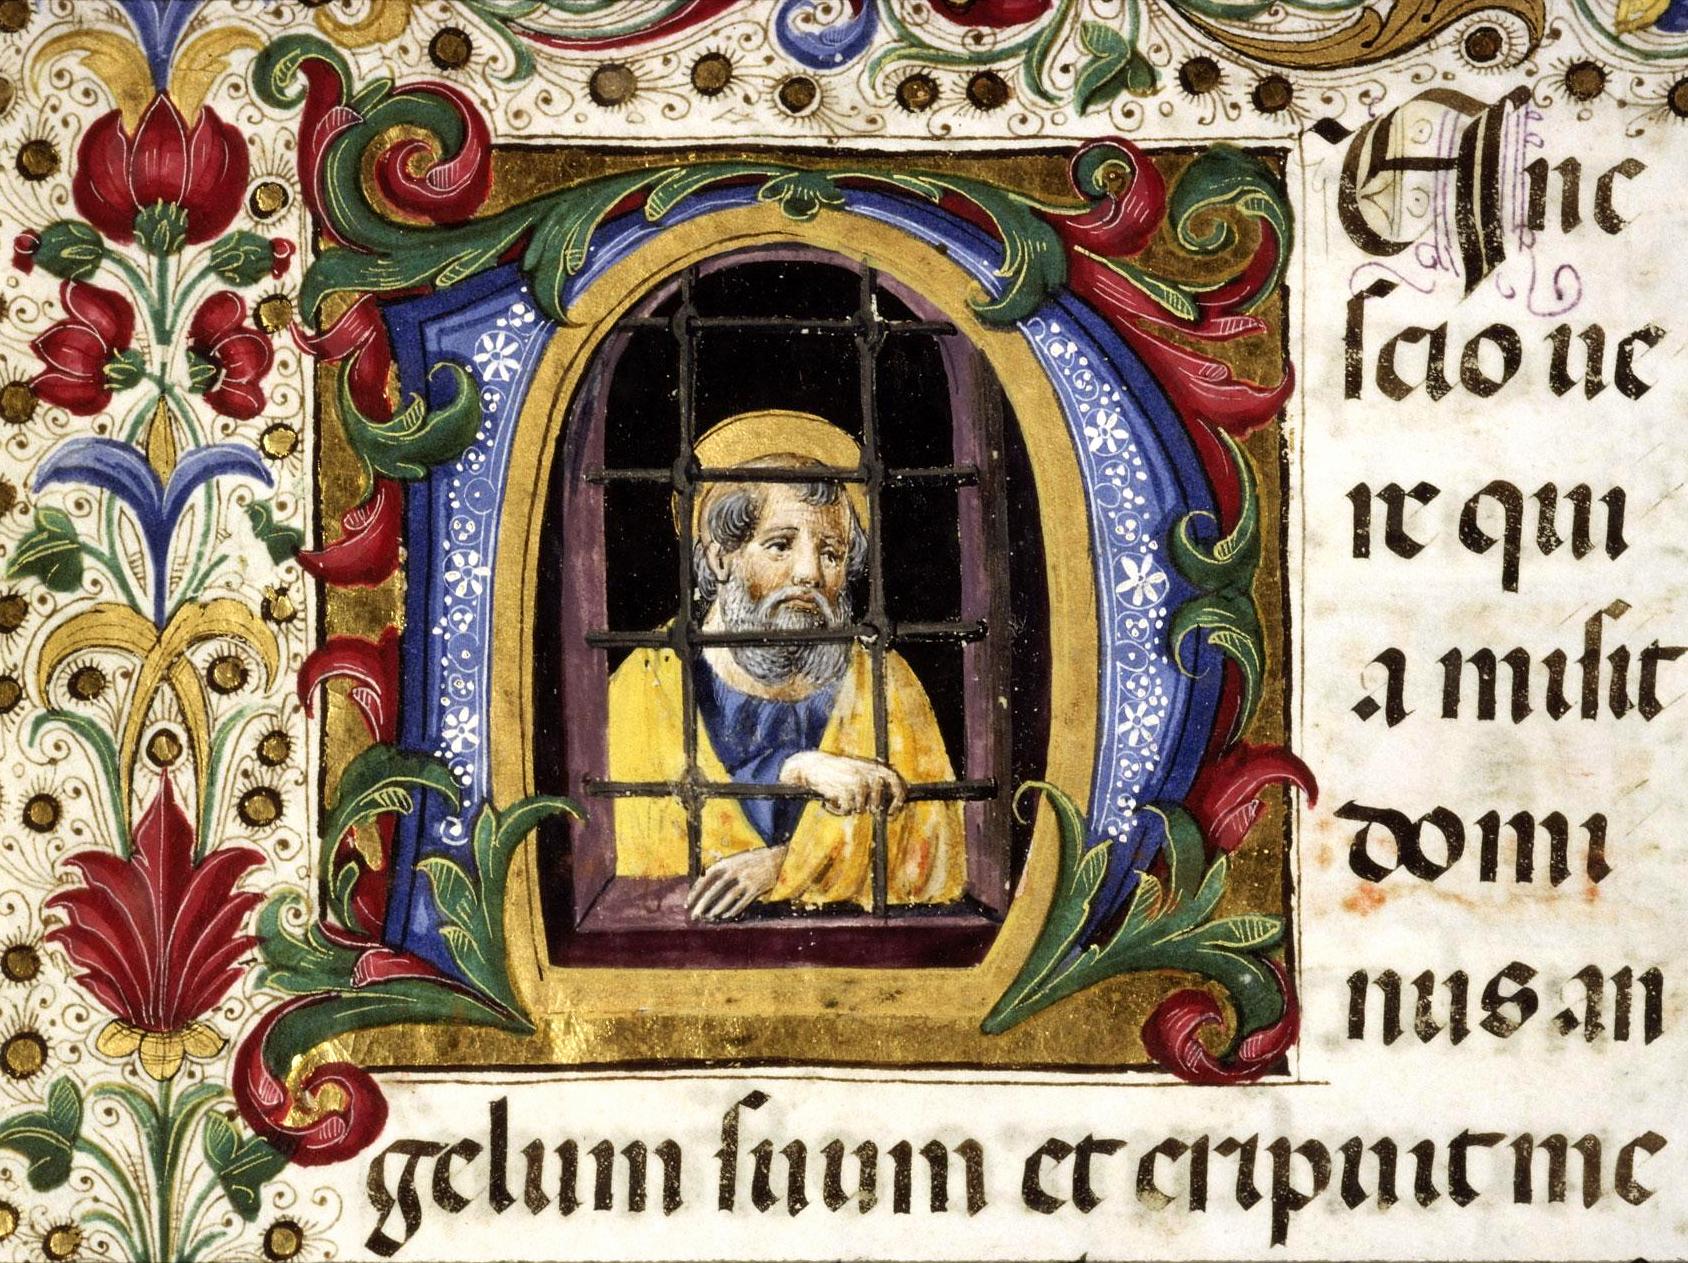 Nunc
scio ue
re qui
a misit
domi
nus an
gelum suum et eripuit me